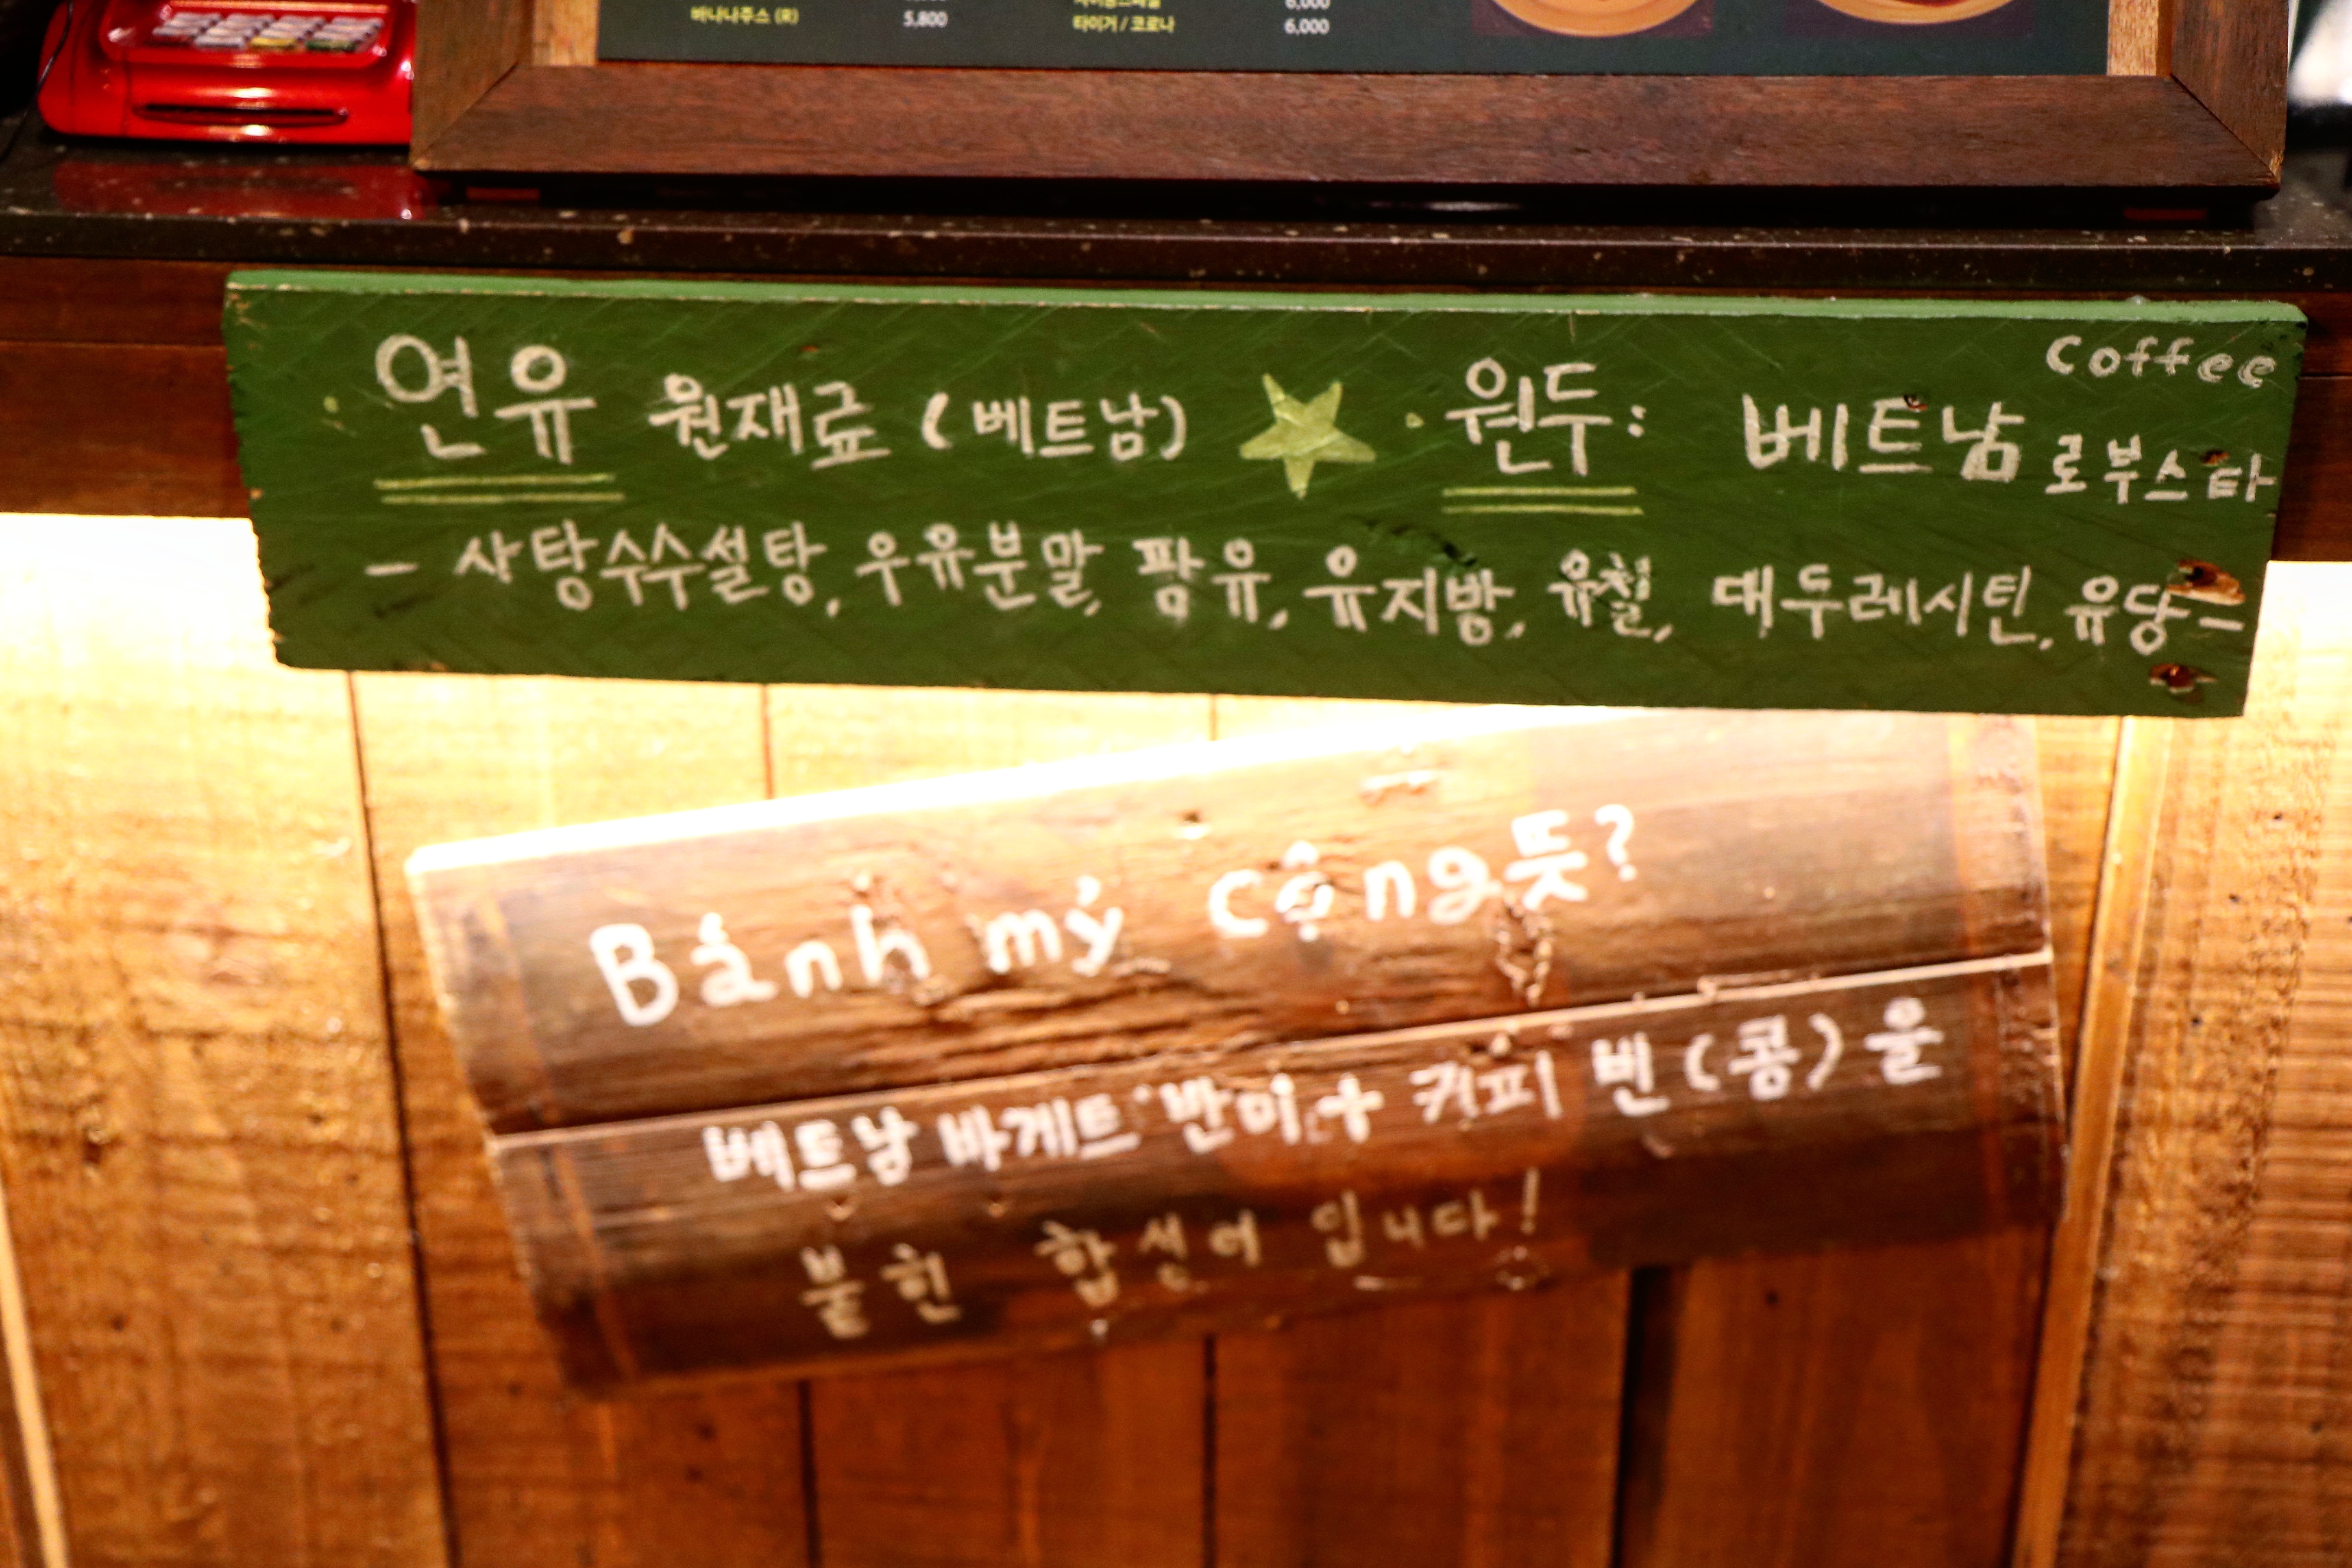 바나나주스 (R) 5,800
6,000
타이거 / 코로나 6,000
Coffee
· 연유 원재료 (베트남) · 원두: 베트남 로부스타
- 사탕수수설탕, 우유분말, 팜유, 유지방, 유청, 대두레시틴, 유당 -
Bánh mỳ cộng 뜻?
베트남 바게트 '반미' + 커피 빈 (콩) 을
불힌 합성어 입니다!